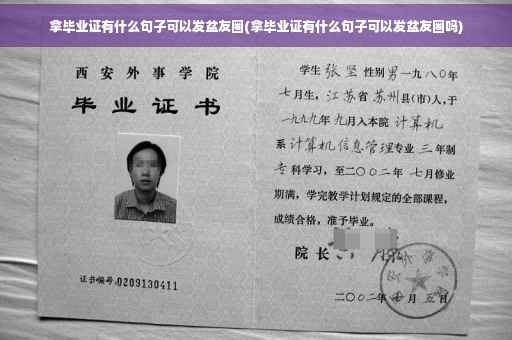 拿毕业证有什么句子可以发盆友圈(拿毕业证有什么句子可以发盆友圈吗)
西安外事学院
毕业证书
证书编号:0209130411
学生 张坚 性别 男 一九八〇年
七月生，江苏省 苏州县(市)人，于
一九九九年 九月入本院 计算机
系 计算机信息管理专业 三 年制
专科学习，至二〇〇二年 七月修业
期满，学完教学计划规定的全部课程，
成绩合格，准予毕业。
院长
二〇〇二年 月 五日